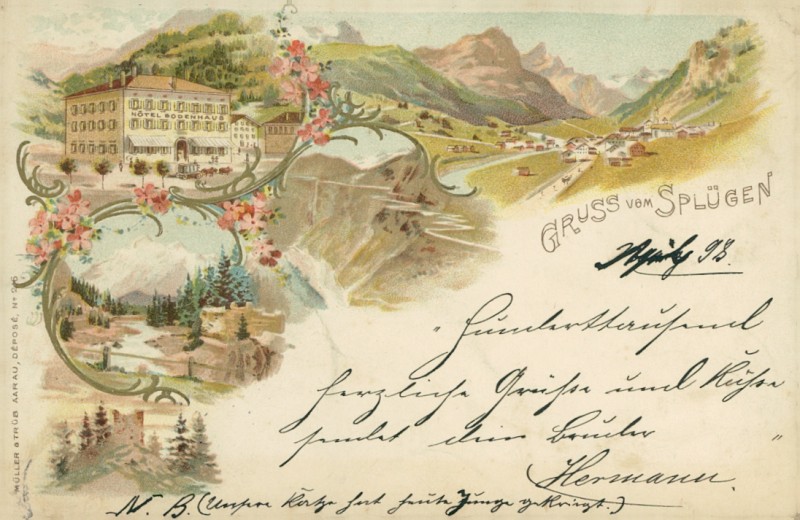 HÔTEL BODENHAUS
GRUSS VOM SPLÜGEN
93.
„Hunderttausend
herzliche Grüße und Küsse
sendet dein Bruder "
Hermann.
N. B. (Unsere Katze hat heute Junge gekriegt.)
MÜLLER & TRÜB AARAU, DÉPOSÉ, No